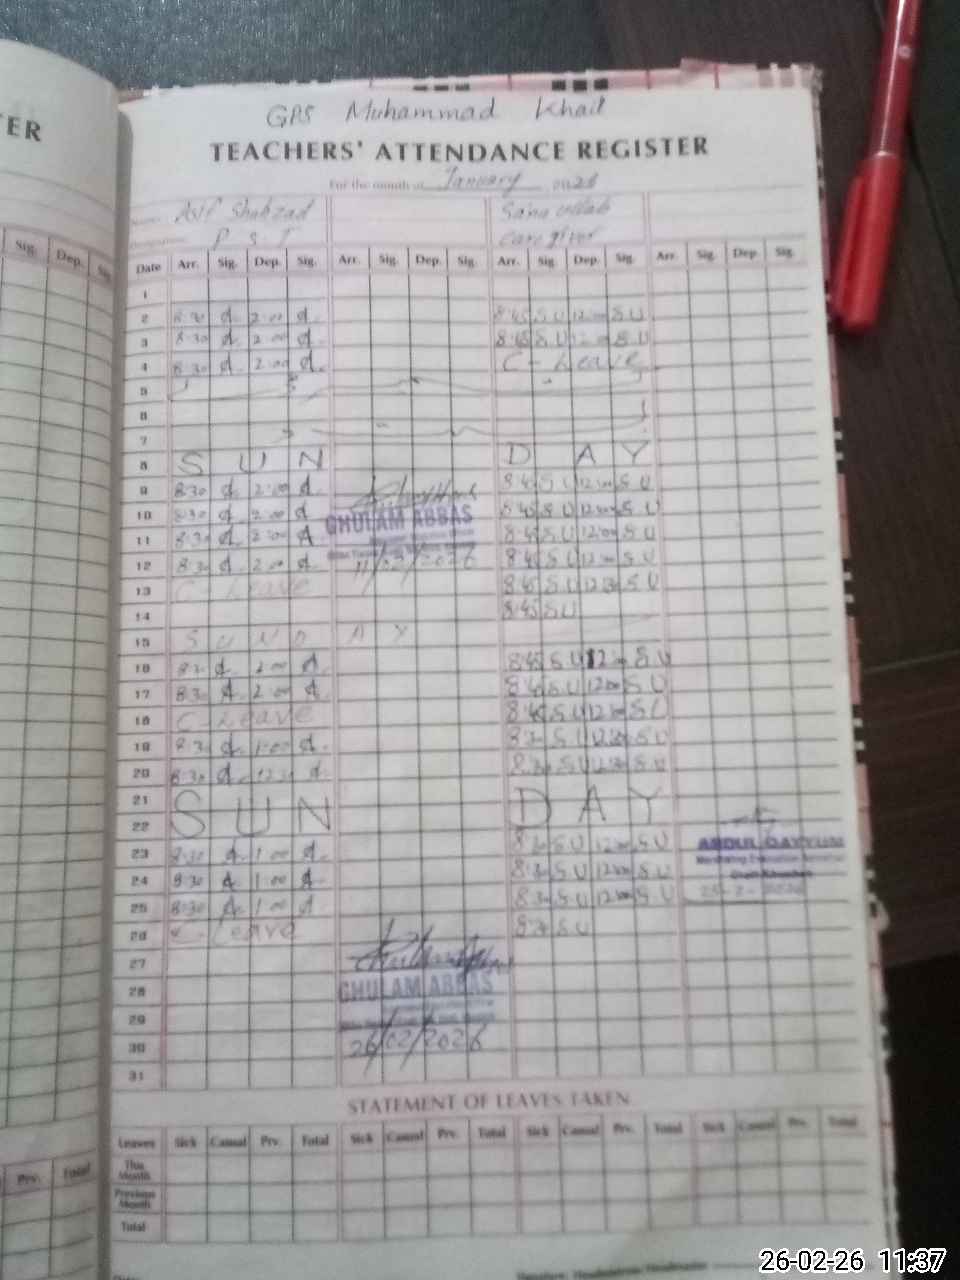 TER
GPS Muhammad Khail
TEACHERS' ATTENDANCE REGISTER
For the month of January 2026
Name Asif Shahzad Sana ullah
P S T Care giver
Sig. Dep. Sig
Date Arr. Sig. Dep. Sig. Arr. Sig. Dep. Sig. Arr. Sig. Dep. Sig. Arr. Sig. Dep. Sig.
1
2 8:30 2:00 8:45 S.U 12:00 S.U
3 8:30 2:00 8:45 S.U S.U
4 8:30 2:00 C- Leave
5
6
7
8 S U N D A Y
9 8:30 2:00 8:45 S.U 12:00 S.U
10 8:30 2:00 8:45 S.U 12:00 S.U
GHULAM ABBAS
11 8:30 2:00 8:45 S.U 12:00 S.U
12 8:30 2:00 11/02/2026 8:45 S.U 12:00 S.U
13 C- Leave 8:45 S.U 12:30 S.U
14 8:45 S.U
15 S U N D A Y
16 2:00 8:45 S.U 12:00 S.U
17 8:30 2:00 8:45 S.U 12:00 S.U
18 C- Leave 8:45 S.U 12:00 S.U
19 8:30 1:00 8:30 S.U 12:30 S.U
20 8:30 12:30 8:30 S.U 12:30 S.U
21
22 S U N D A Y
23 8:30 1:00 8:30 S.U 12:00 S.U
ABDUL QAYYUM
24 8:30 1:00 8:30 S.U 12:00 S.U
25 8:30 1:00 8:30 S.U 12:00 S.U
26 C- Leave 8:30 S.U
27
28 GHULAM ABBAS
29
30 26/02/2026
31
STATEMENT OF LEAVES TAKEN
Prv. Total
Leaves Sick Casual Prv. Total Sick Casual Prv. Total Sick Casual Prv. Total Sick Casual Prv. Total
This Month
Previous Month
Total
26-02-26 11:37